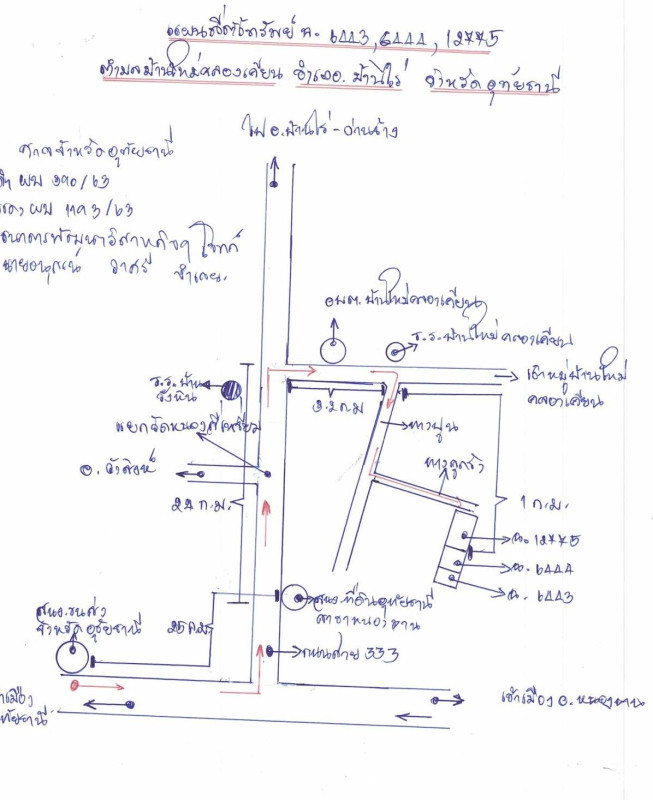 แผนที่ตั้งทรัพย์ ฉ. 6443, 6444, 12775
ตำบลบ้านใหม่คลองเคียน อำเภอ. บ้านไร่ จังหวัด อุทัยธานี
ไป อ. บ้านไร่ - ด่านช้าง
ศาลจังหวัดอุทัยธานี
ผบ 390/63
แดง ผบ 1193/63
ธนาคารพัฒนาวิสาหกิจฯ โจทก์
จำเลย.
อบต. บ้านใหม่คลองเคียน
ร.ร. บ้านใหม่คลองเคียน
เข้าหมู่บ้านใหม่
คลองเคียน
ร.ร. บ้าน
3.2 ก.ม
ทางปูน
ทางลูกรัง
แยกวัดหนอง
อ. วัดสิงห์
22 ก.ม.
1 ก.ม.
ฉ. 12775
ฉ. 6444
ฉ. 6443
สนง. ที่ดินอุทัยธานี
สาขาหนองฉาง
สนง. ขนส่ง
จังหวัดอุทัยธานี
25 ก.ม.
ถนนสาย 333
เข้าเมือง อ. หนองฉาง
เข้าเมือง
อุทัยธานี